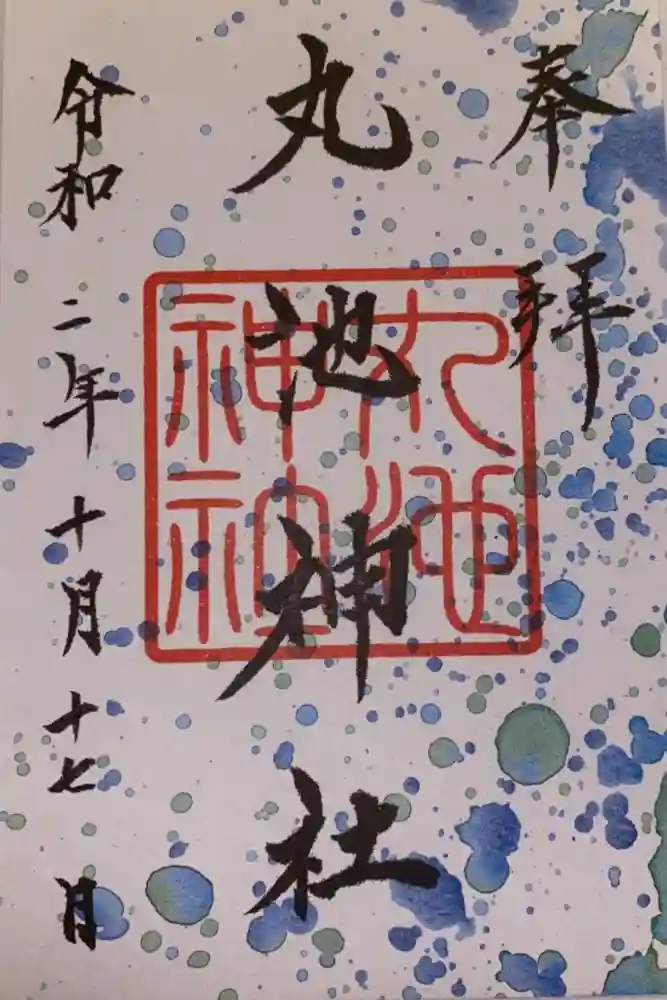 奉拝
丸池神社
令和二年十月十七日
丸池
神社